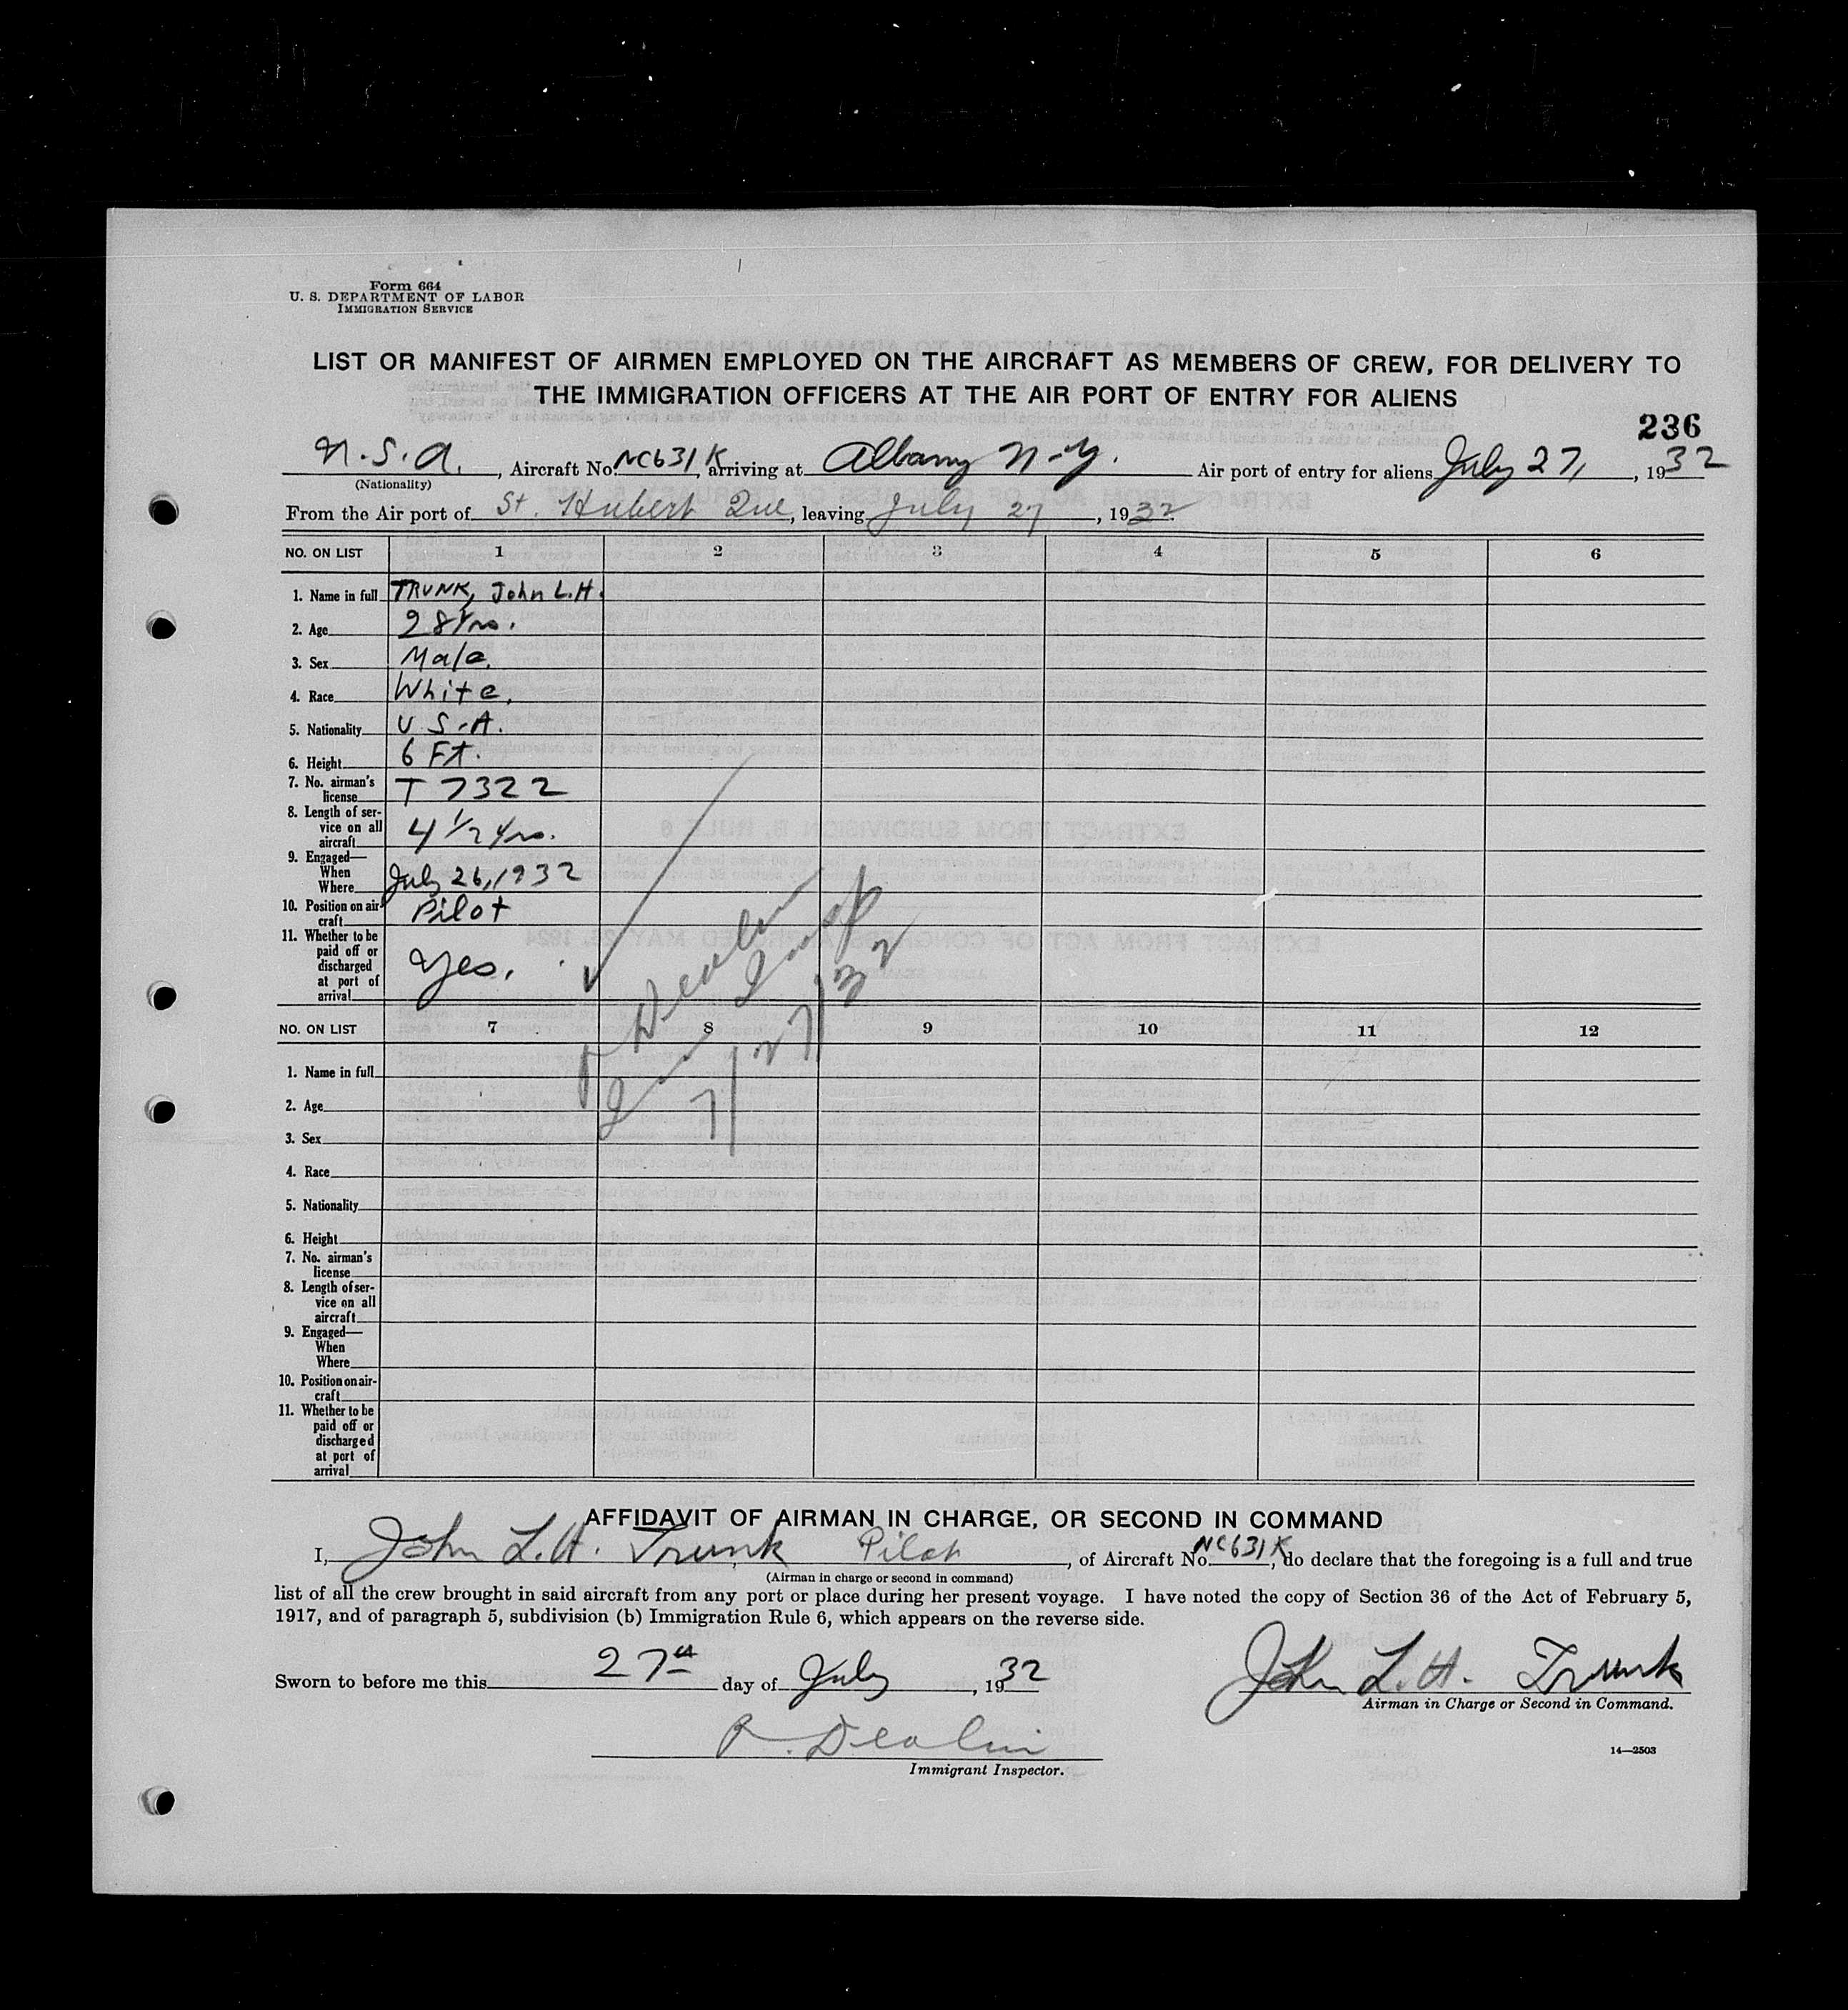 Form 664
U. S. DEPARTMENT OF LABOR
IMMIGRATION SERVICE
LIST OR MANIFEST OF AIRMEN EMPLOYED ON THE AIRCRAFT AS MEMBERS OF CREW, FOR DELIVERY TO
THE IMMIGRATION OFFICERS AT THE AIR PORT OF ENTRY FOR ALIENS
236
U.S.A., Aircraft No. NC631K, arriving at Albany N.Y. Air port of entry for aliens July 27, 1932
(Nationality)
From the Air port of St. Hubert Que, leaving July 27, 1932.
NO. ON LIST 1 2 3 4 5 6
1. Name in full TRUNK, John L.H.
2. Age 28 Yrs.
3. Sex Male.
4. Race White.
5. Nationality U.S.A.
6. Height 6 Ft.
7. No. airman's
license T 7322
8. Length of ser-
vice on all
aircraft 4 1/2 yrs.
9. Engaged—
When
Where July 26, 1932
10. Position on air-
craft Pilot
11. Whether to be
paid off or
discharged
at port of
arrival Yes.
R Deolin
Imm Insp
7/27/32
NO. ON LIST 7 8 9 10 11 12
1. Name in full
2. Age
3. Sex
4. Race
5. Nationality
6. Height
7. No. airman's
license
8. Length of ser-
vice on all
aircraft
9. Engaged—
When
Where
10. Position on air-
craft
11. Whether to be
paid off or
discharged
at port of
arrival
AFFIDAVIT OF AIRMAN IN CHARGE, OR SECOND IN COMMAND
I, John L.H. Trunk Pilot, of Aircraft No. NC631K, do declare that the foregoing is a full and true
(Airman in charge or second in command)
list of all the crew brought in said aircraft from any port or place during her present voyage. I have noted the copy of Section 36 of the Act of February 5,
1917, and of paragraph 5, subdivision (b) Immigration Rule 6, which appears on the reverse side.
Sworn to before me this 27th day of July, 1932
John L.H. Trunk
Airman in Charge or Second in Command.
R. Deolin
Immigrant Inspector.
14—2503